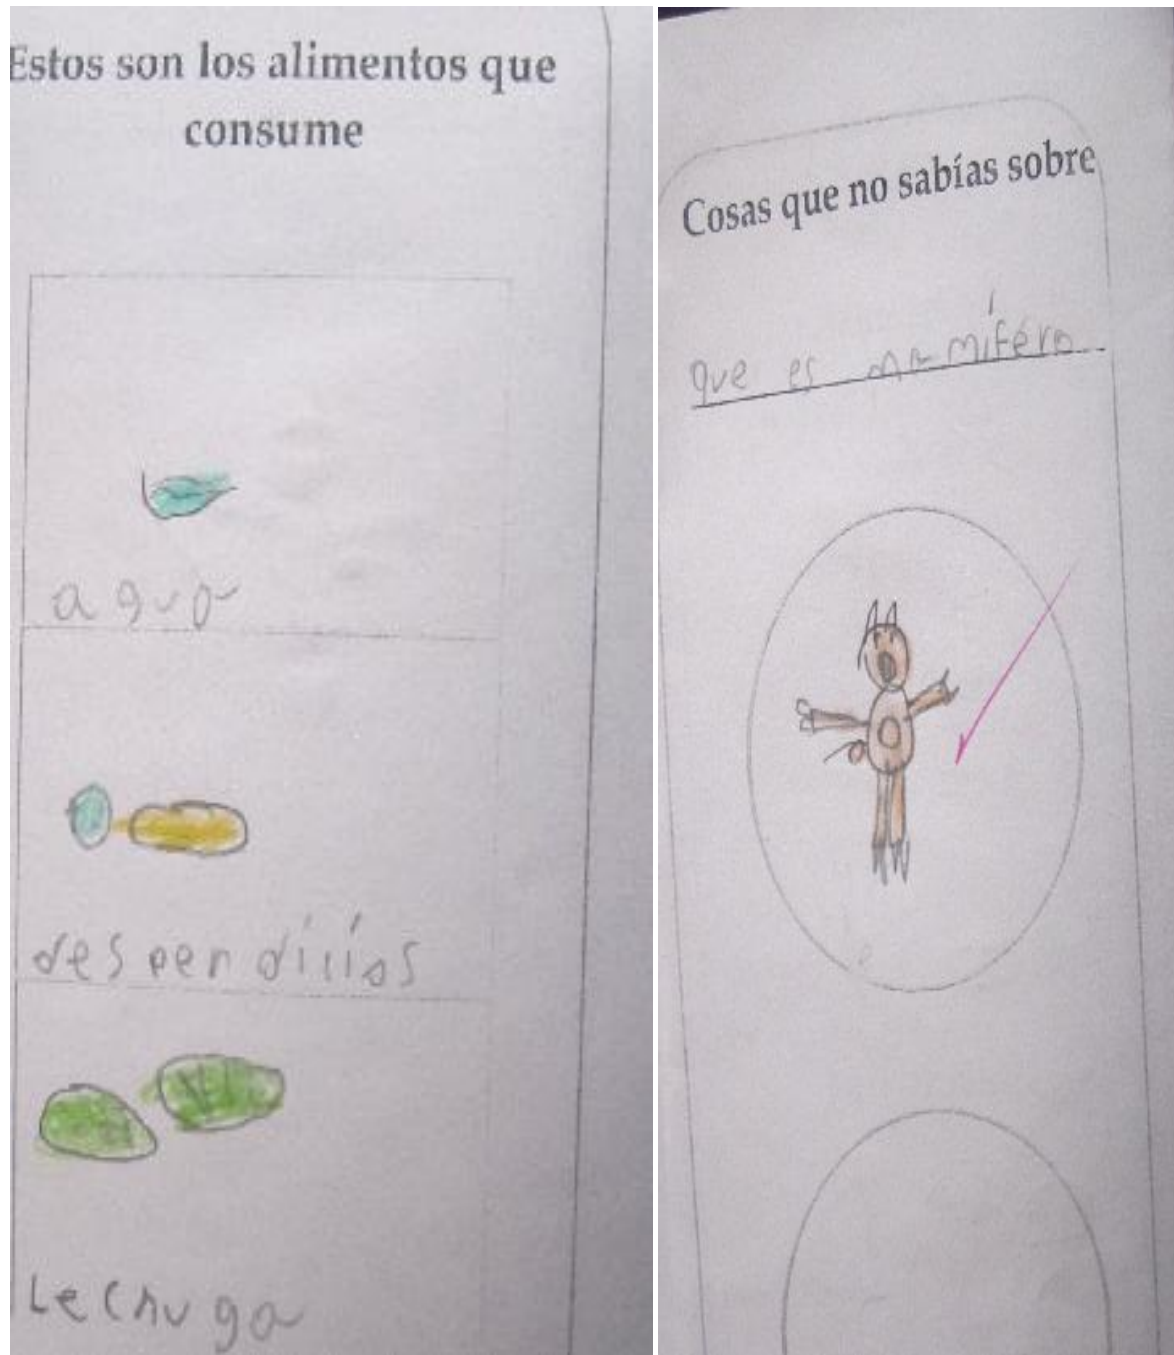 Estos son los alimentos que
consume
agua
desperdicios
Lechuga
Cosas que no sabías sobre
que es mamífero